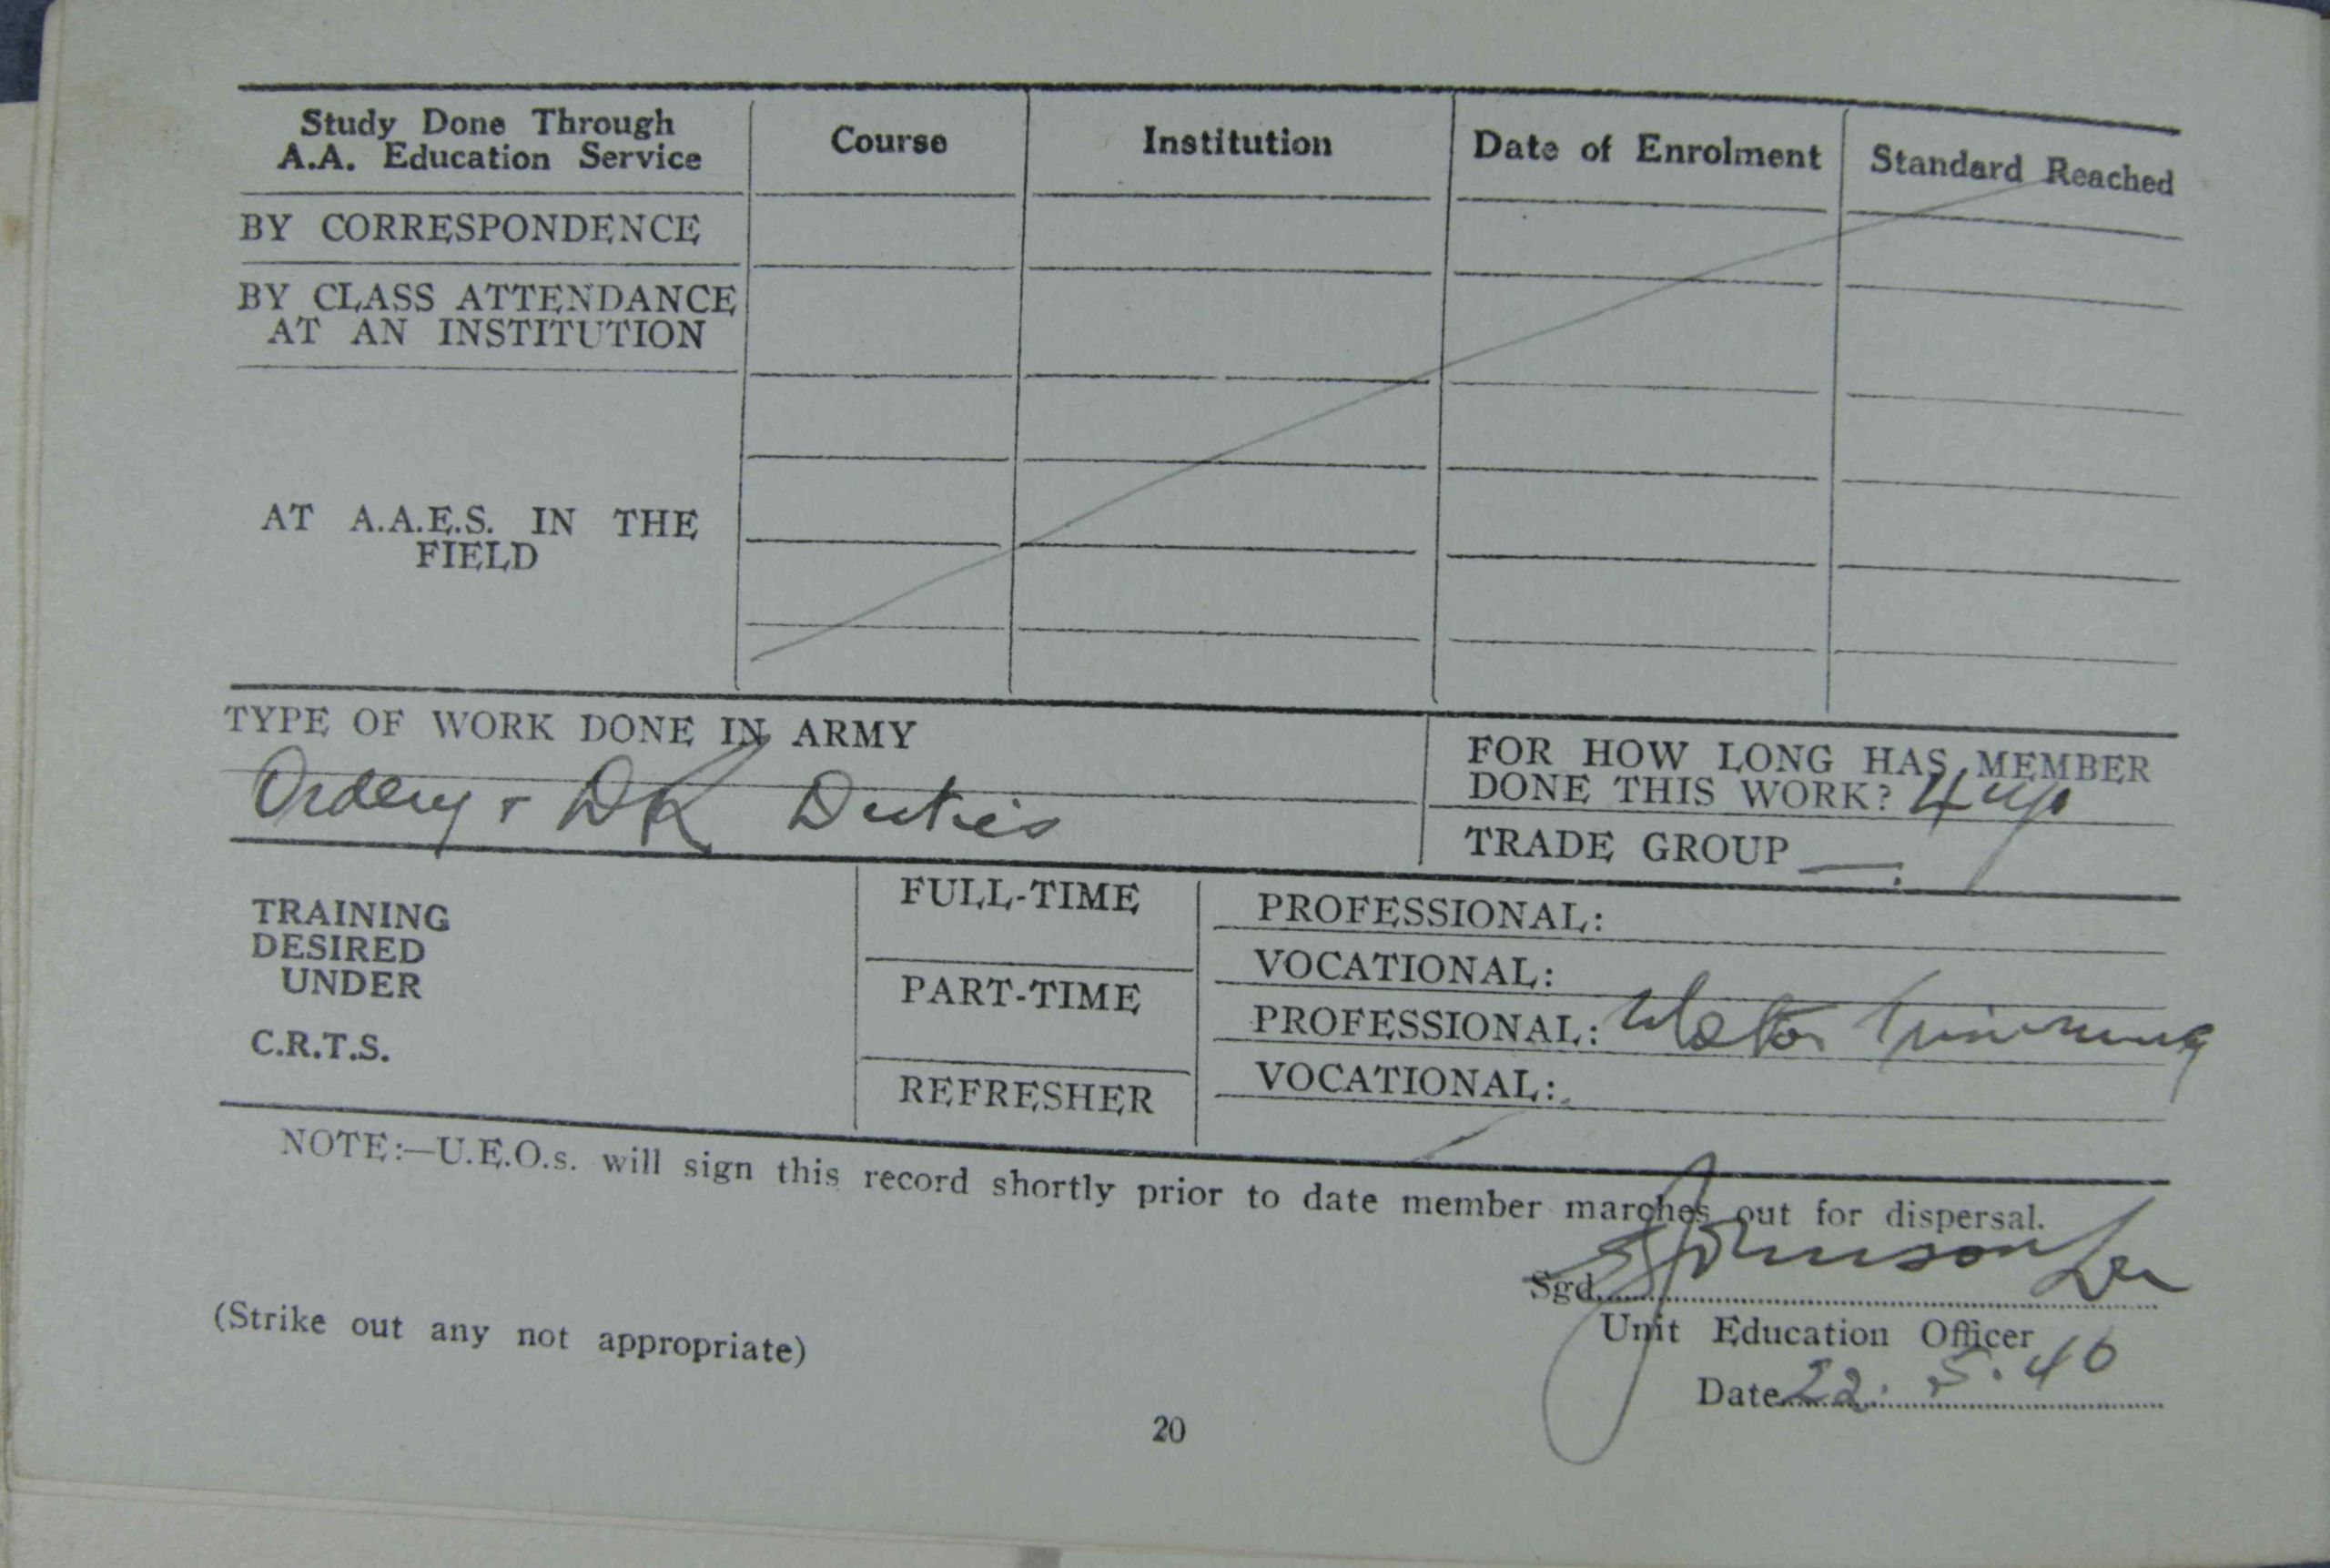 Study Done Through
A.A. Education Service
Course
Institution
Date of Enrolment
Standard Reached
BY CORRESPONDENCE
BY CLASS ATTENDANCE
AT AN INSTITUTION
AT A.A.E.S. IN THE
FIELD
TYPE OF WORK DONE IN ARMY
Orderly & DR Duties
FOR HOW LONG HAS MEMBER
DONE THIS WORK? 4
TRADE GROUP —
TRAINING
DESIRED
UNDER
C.R.T.S.
FULL-TIME
PROFESSIONAL:
VOCATIONAL:
PART-TIME
PROFESSIONAL: Motor Trimming
VOCATIONAL:
REFRESHER
NOTE:—U.E.O.s. will sign this record shortly prior to date member marches out for dispersal.
Sgd. Johnson
Unit Education Officer
Date 22.5.46
(Strike out any not appropriate)
20